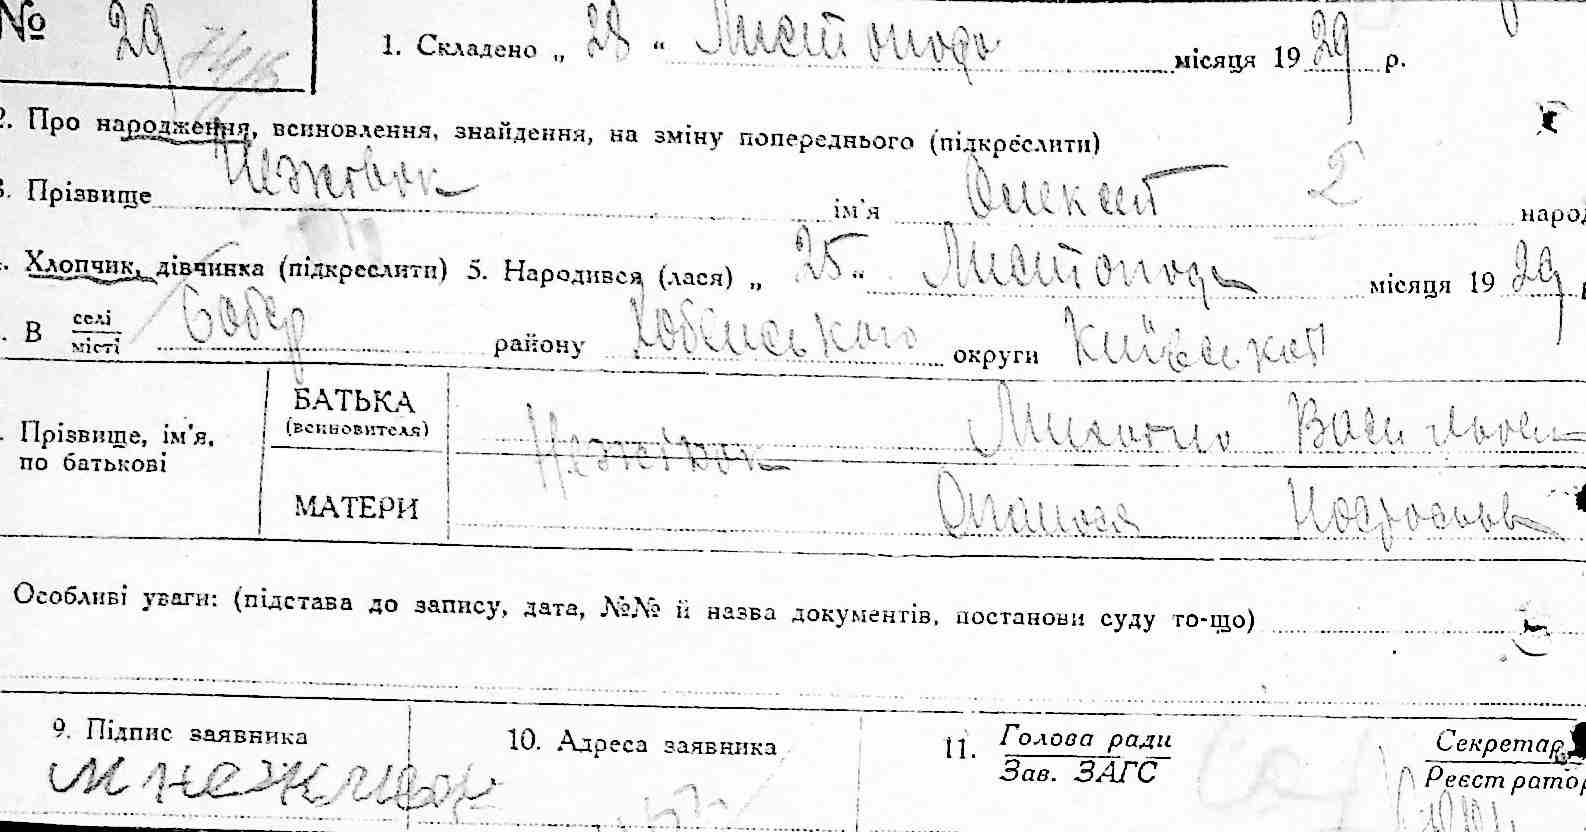 № 29
1. Складено „ 28 “ Листопада місяця 1929 р.
2. Про народження, всиновлення, знайдення, на зміну попереднього (підкреслити)
3. Прізвище ім'я Олексій 2 народ
4. Хлопчик, дівчинка (підкреслити) 5. Народився (лася) „ 25 “ Листопада місяця 1929 р
В селі Бобер району Хабенського округи Київської
місті
БАТЬКА
(всиновителя) Михайло Васильов
Прізвище, ім'я,
по батькові
МАТЕРИ Опанасія
Особливі уваги: (підстава до запису, дата, №№ й назва документів, постанови суду то-що)
9. Підпис заявника 10. Адреса заявника 11. Голова ради Секретар
Зав. ЗАГС Реєстратор